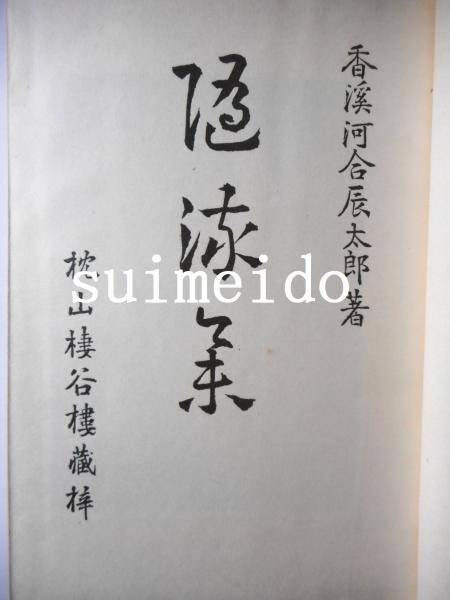 香溪河合辰太郎著
随縁集
枕山棲谷樓藏梓
suimeido